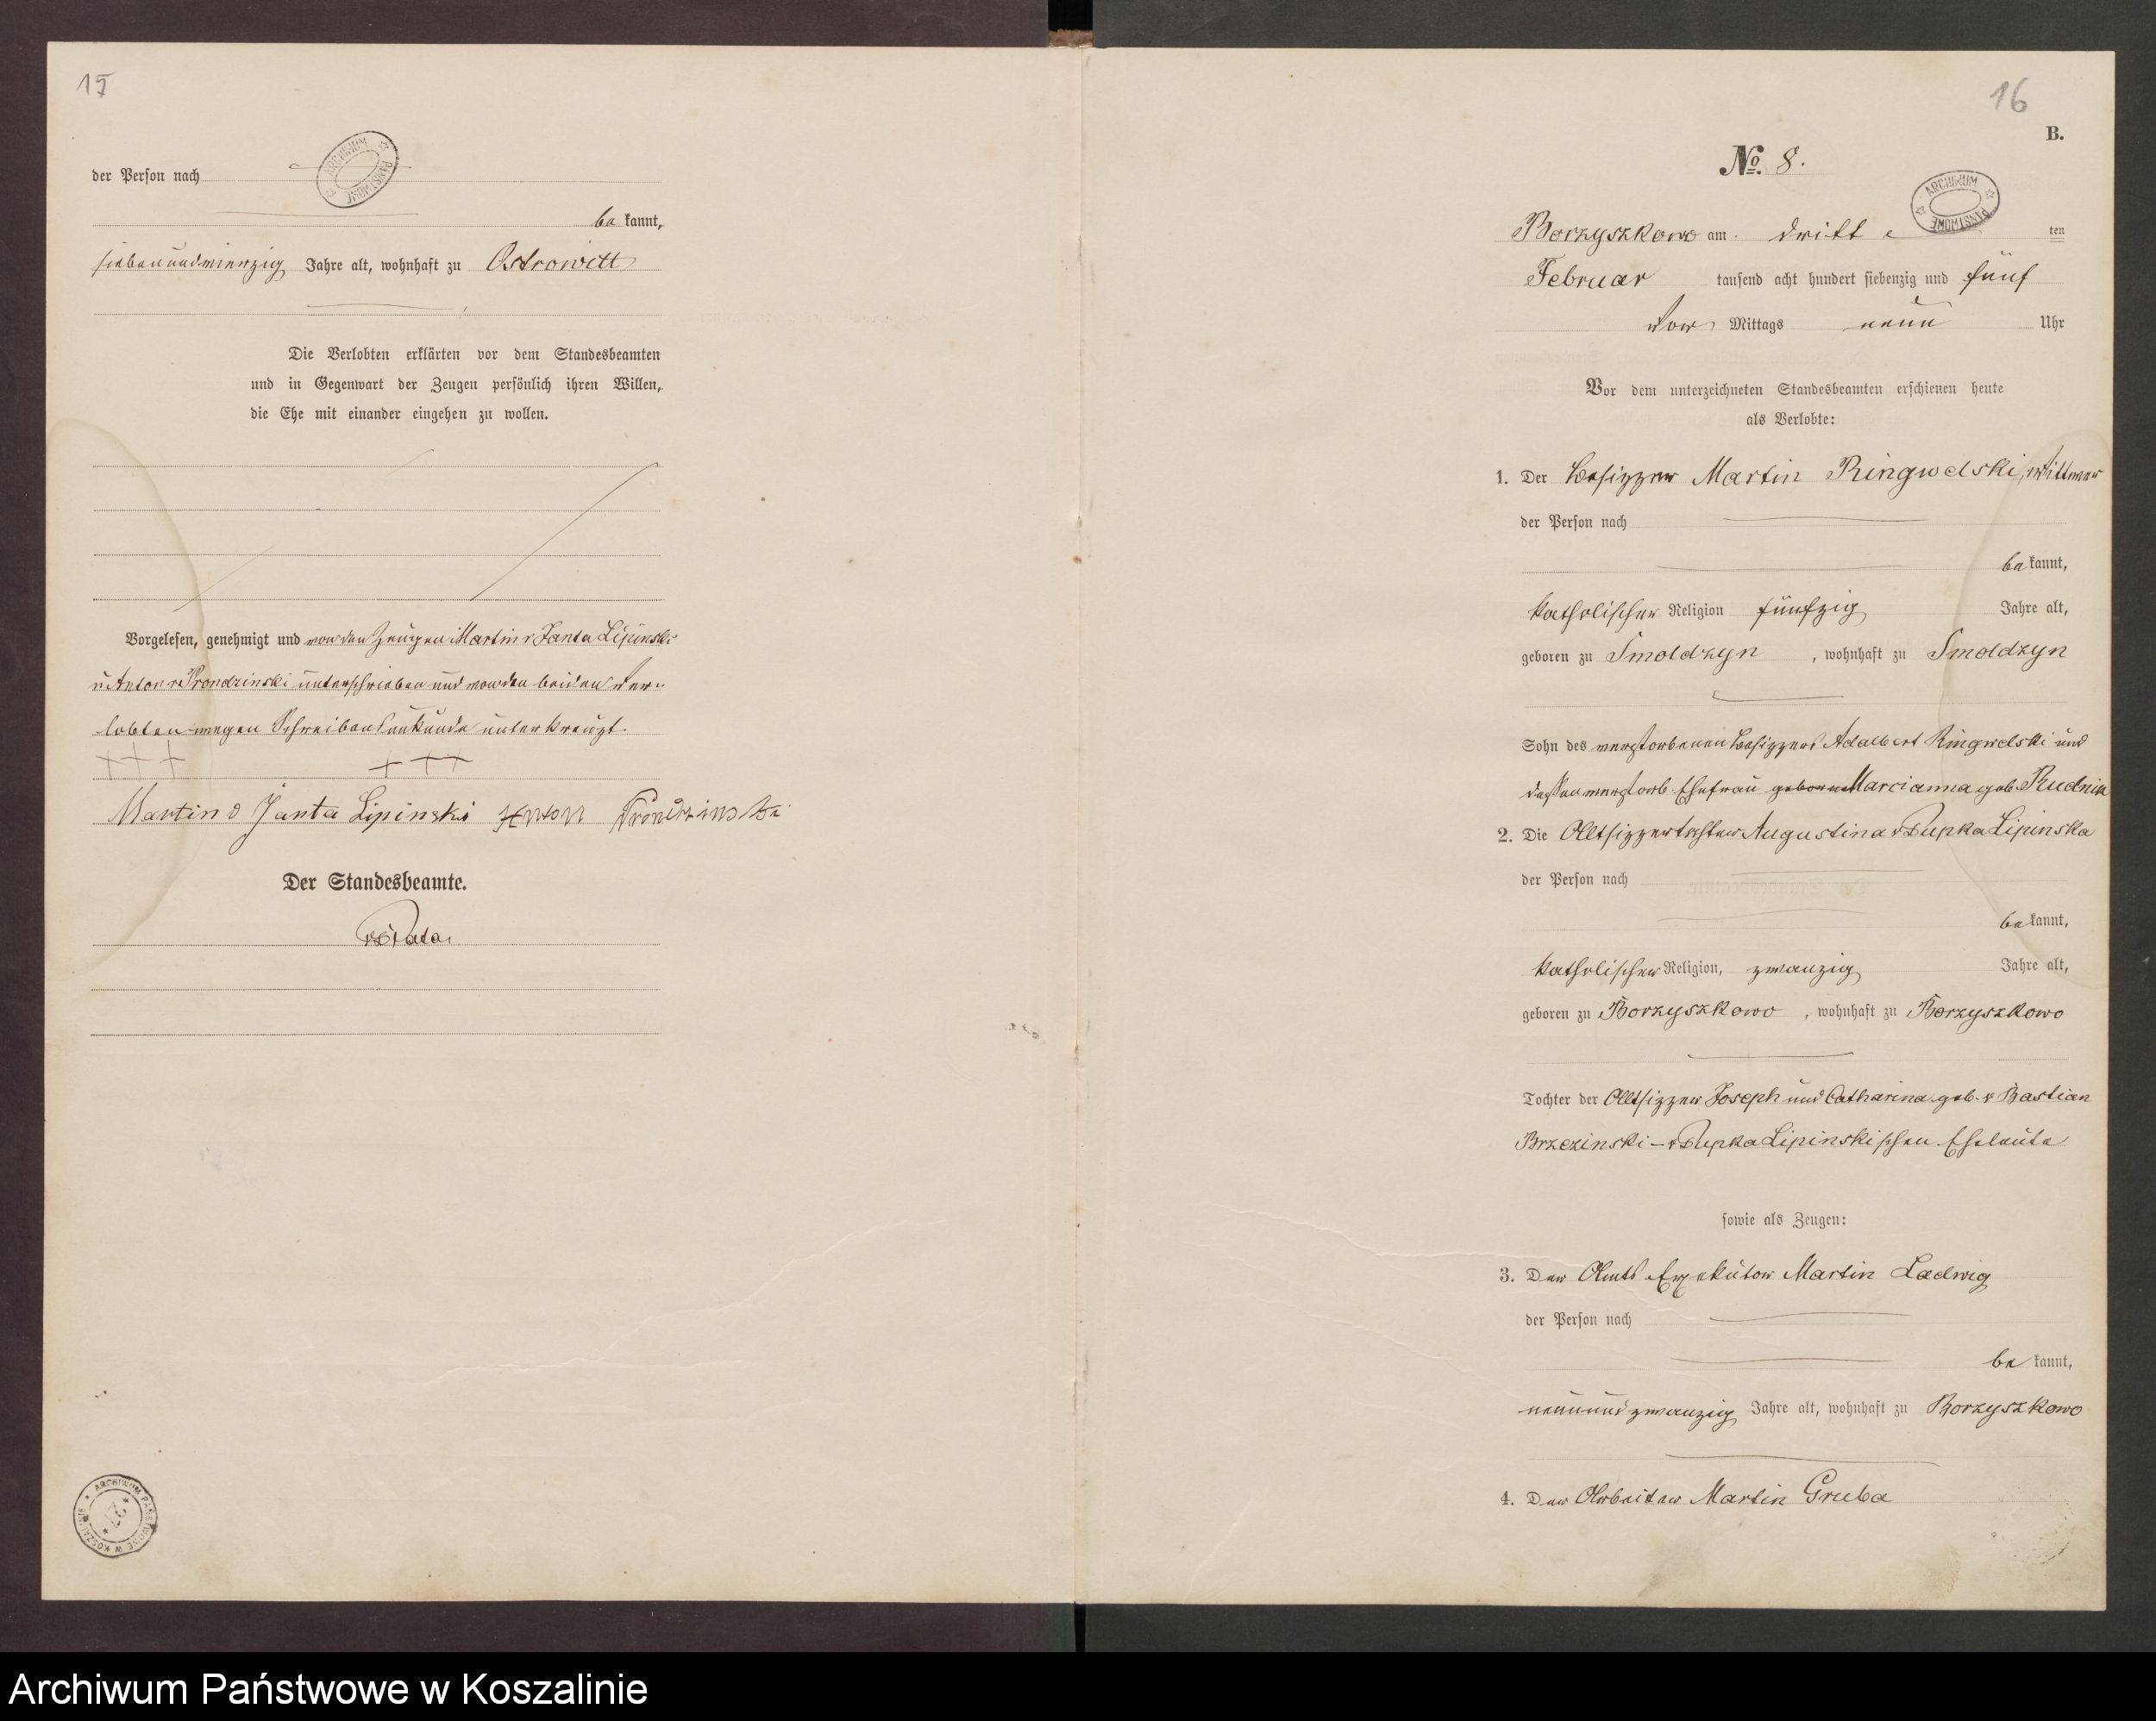 15
der Person nach
bekannt,
siebenundvierzig Jahre alt, wohnhaft zu Ostrowitt
Die Verlobten erklärten vor dem Standesbeamten
und in Gegenwart der Zeugen persönlich ihren Willen,
die Ehe mit einander eingehen zu wollen.
Vorgelesen, genehmigt und von den Zeugen Martin v Janta Lipinski
u Anton v Prondzinski unterschrieben und von den beiden Ver-
lobten wegen Schreibensunkunde unterkreuzt.
+++ +++
Martin v Janta Lipinski Anton Prondzinski
Der Standesbeamte.
ARCHIWUM PAŃSTWOWE
ARCHIWUM PAŃSTWOWE W KOSZALINIE
16
B.
No. 8.
ARCHIWUM PAŃSTWOWE
Borzyszkowo am dritten
Februar tausend acht hundert siebenzig und fünf
Vor Mittags neun Uhr
Vor dem unterzeichneten Standesbeamten erschienen heute
als Verlobte:
1. Der Besitzer Martin Ringwelski, Wittwer
der Person nach
bekannt,
katholischer Religion fünfzig Jahre alt,
geboren zu Smoldzyn, wohnhaft zu Smoldzyn
Sohn des verstorbenen Besitzers Adalbert Ringwelski und
dessen verstorb Ehefrau geborne Marcianna geb. Rudnik
2. Die Altsitzertochter Augustina v Dupka Lipinska
der Person nach
bekannt,
katholischer Religion, zwanzig Jahre alt,
geboren zu Borzyszkowo, wohnhaft zu Borzyszkowo
Tochter der Altsitzer Joseph und Catharina geb. v Bastian
Brzezinski – v Dupka Lipinskischen Eheleute
sowie als Zeugen:
3. Der Amts Exekutor Martin Ladwig
der Person nach
bekannt,
neunundzwanzig Jahre alt, wohnhaft zu Borzyszkowo
4. Der Arbeiter Martin Gruba
Archiwum Państwowe w Koszalinie